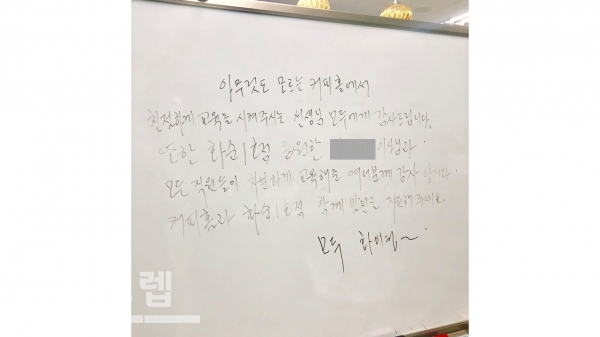 아무것도 모르는 커피홀에서
친절하게 교육을 시켜주시는 선생님 모두에게 감사드립니다.
또한 화순1호점 응원한 이사님과
모든 직원들이 차분하게 교육해준 여러분께 감사합니다.
커피홀과 화순1호점 함께 발전을 기원해주세요
모두 화이팅~
렙